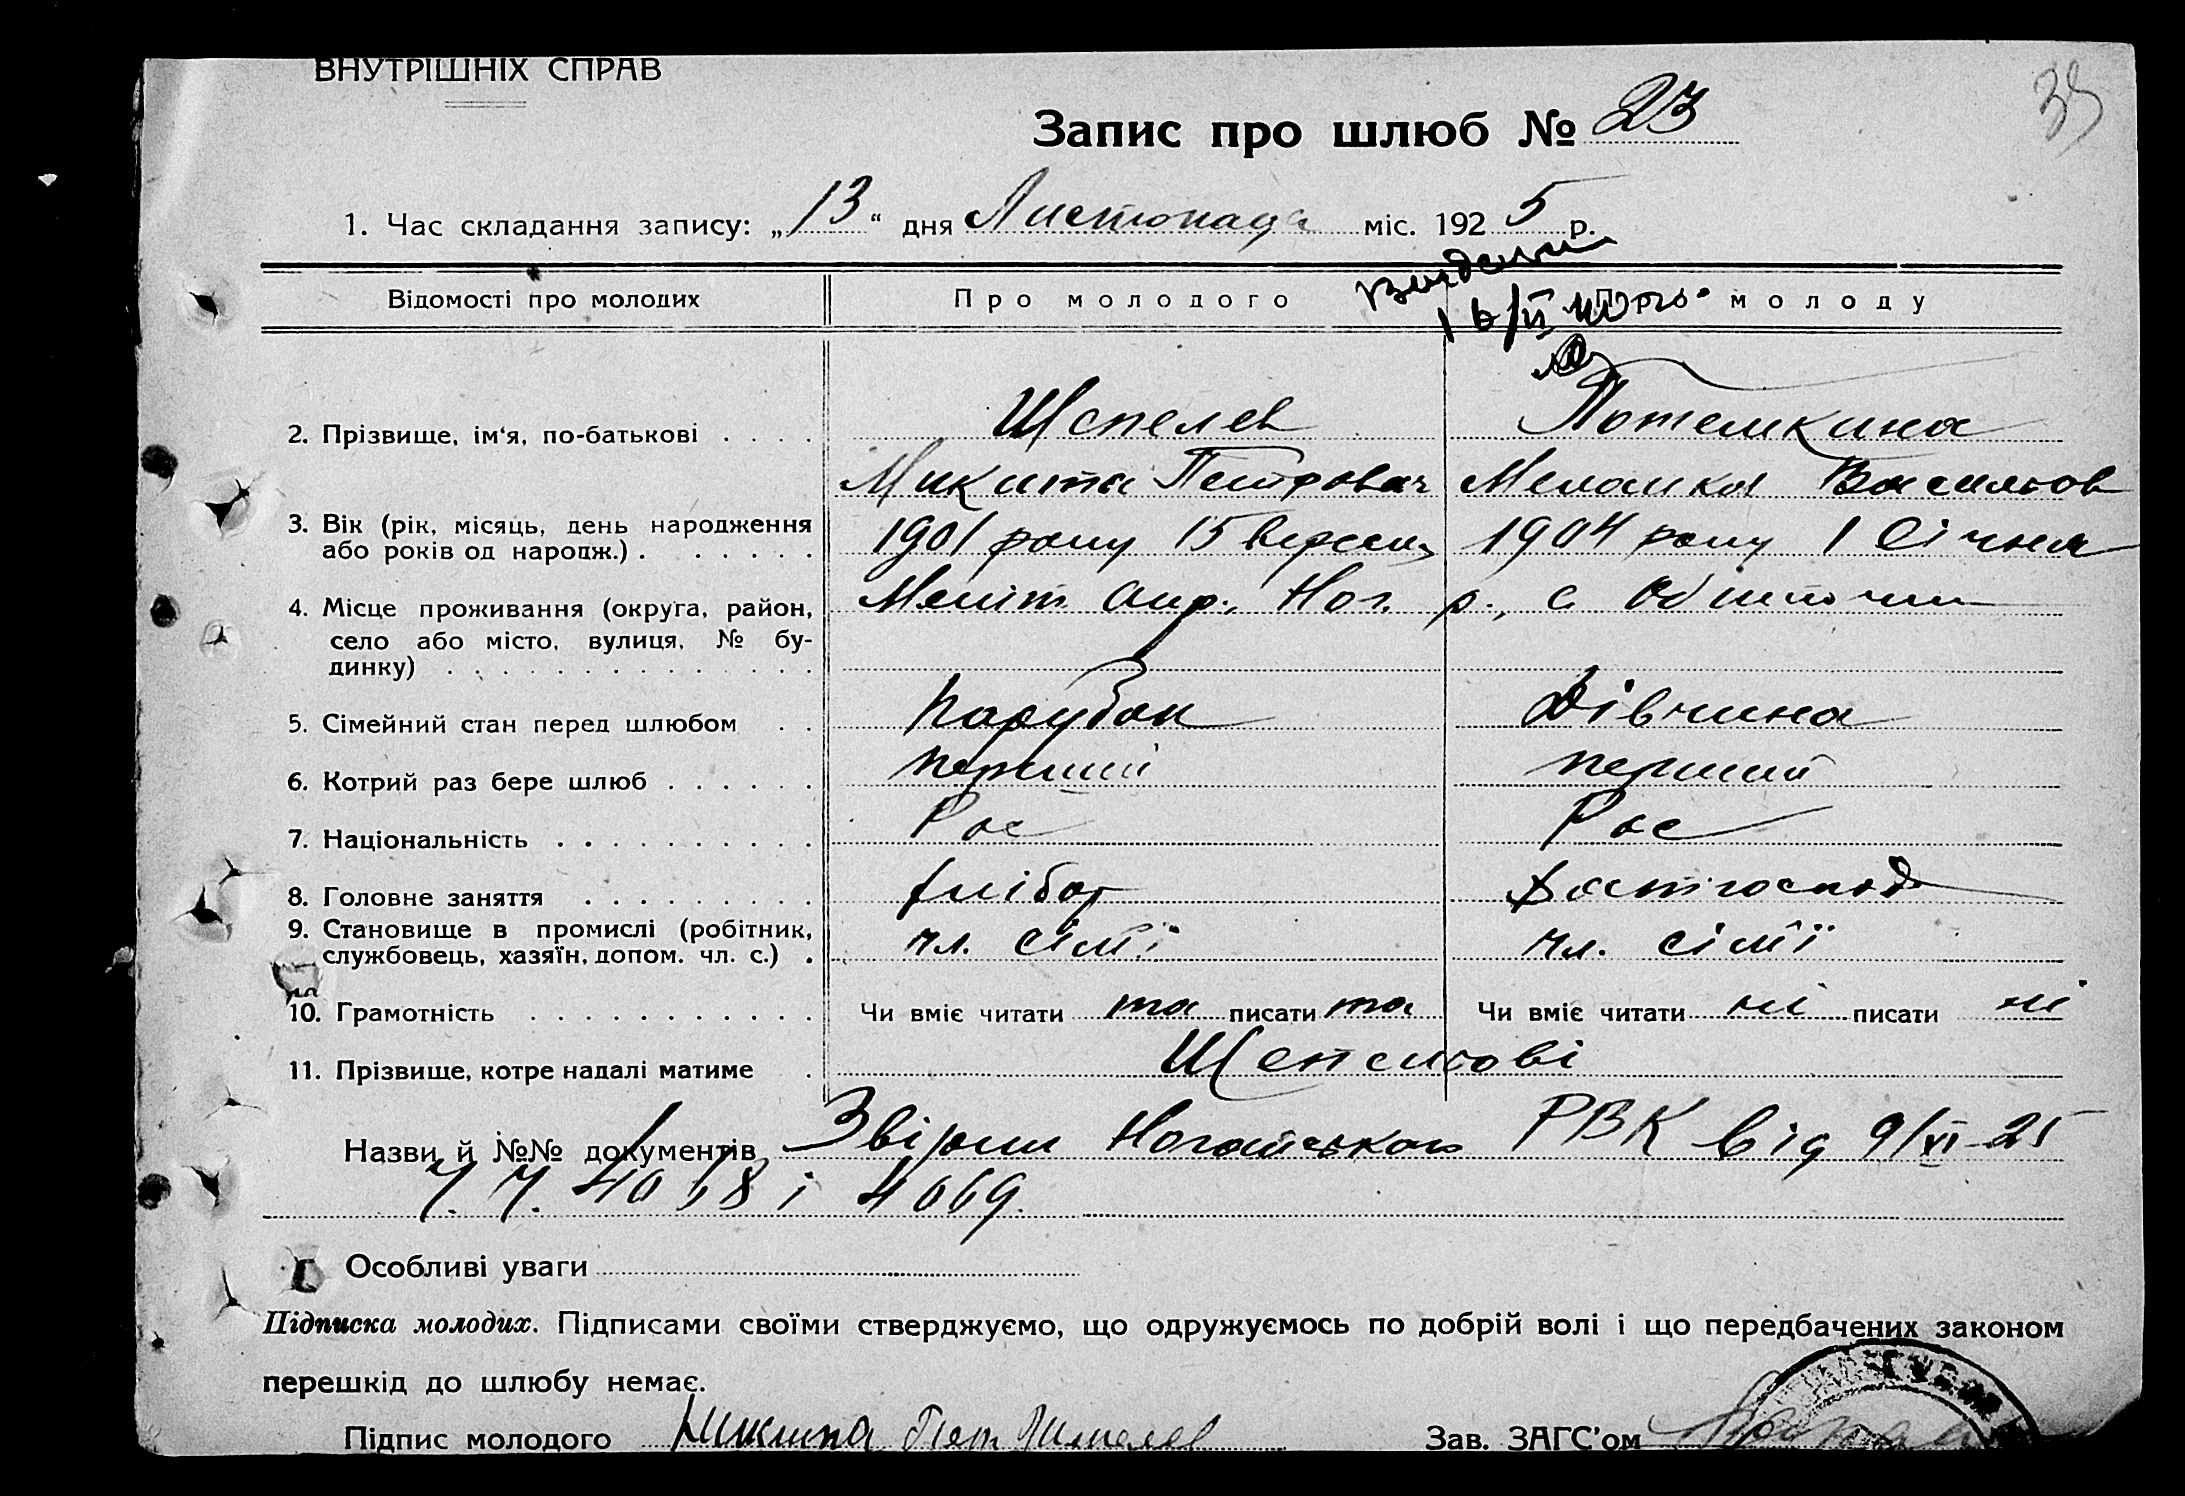 ВНУТРІШНІХ СПРАВ
39
Запис про шлюб № 23
1. Час складання запису: „13“ дня Листопада міс. 1925 р.
Відомості про молодих Про молодого Про молоду
2. Прізвище, ім'я, по-батькові . . . . Щепелев Потемкина
Микита Петрович Меланка Васильов
3. Вік (рік, місяць, день народження 1901 року 15 вересня 1904 року 1 Січня
або років од народж.) . . . . . . .
4. Місце проживання (округа, район, Меліт. окр., Ног. р., с. Обиточни
село або місто, вулиця, № бу-
динку) . . . . . . . . . . . . . .
5. Сімейний стан перед шлюбом . . Парубок Дівчина
6. Котрий раз бере шлюб . . . . . . перший перший
7. Національність . . . . . . . . . . Рос Рос
8. Головне заняття . . . . . . . . . хлібор домгоспод
9. Становище в промислі (робітник, чл. сімї чл. сімї
службовець, хазяїн, допом. чл. с.) .
10. Грамотність . . . . . . . . . . . Чи вміє читати та писати та Чи вміє читати ні писати ні
11. Прізвище, котре надалі матиме . Щепелеві
Назви й №№ документів Ногайського РВК від 9/XI-25
Ч.Ч. 4068 і 4069.
Особливі уваги
Підписка молодих. Підписами своїми стверджуємо, що одружуємось по добрій волі і що передбачених законом
перешкід до шлюбу немає.
Підпис молодого Микита Пет Щепелев Зав. ЗАГС'ом